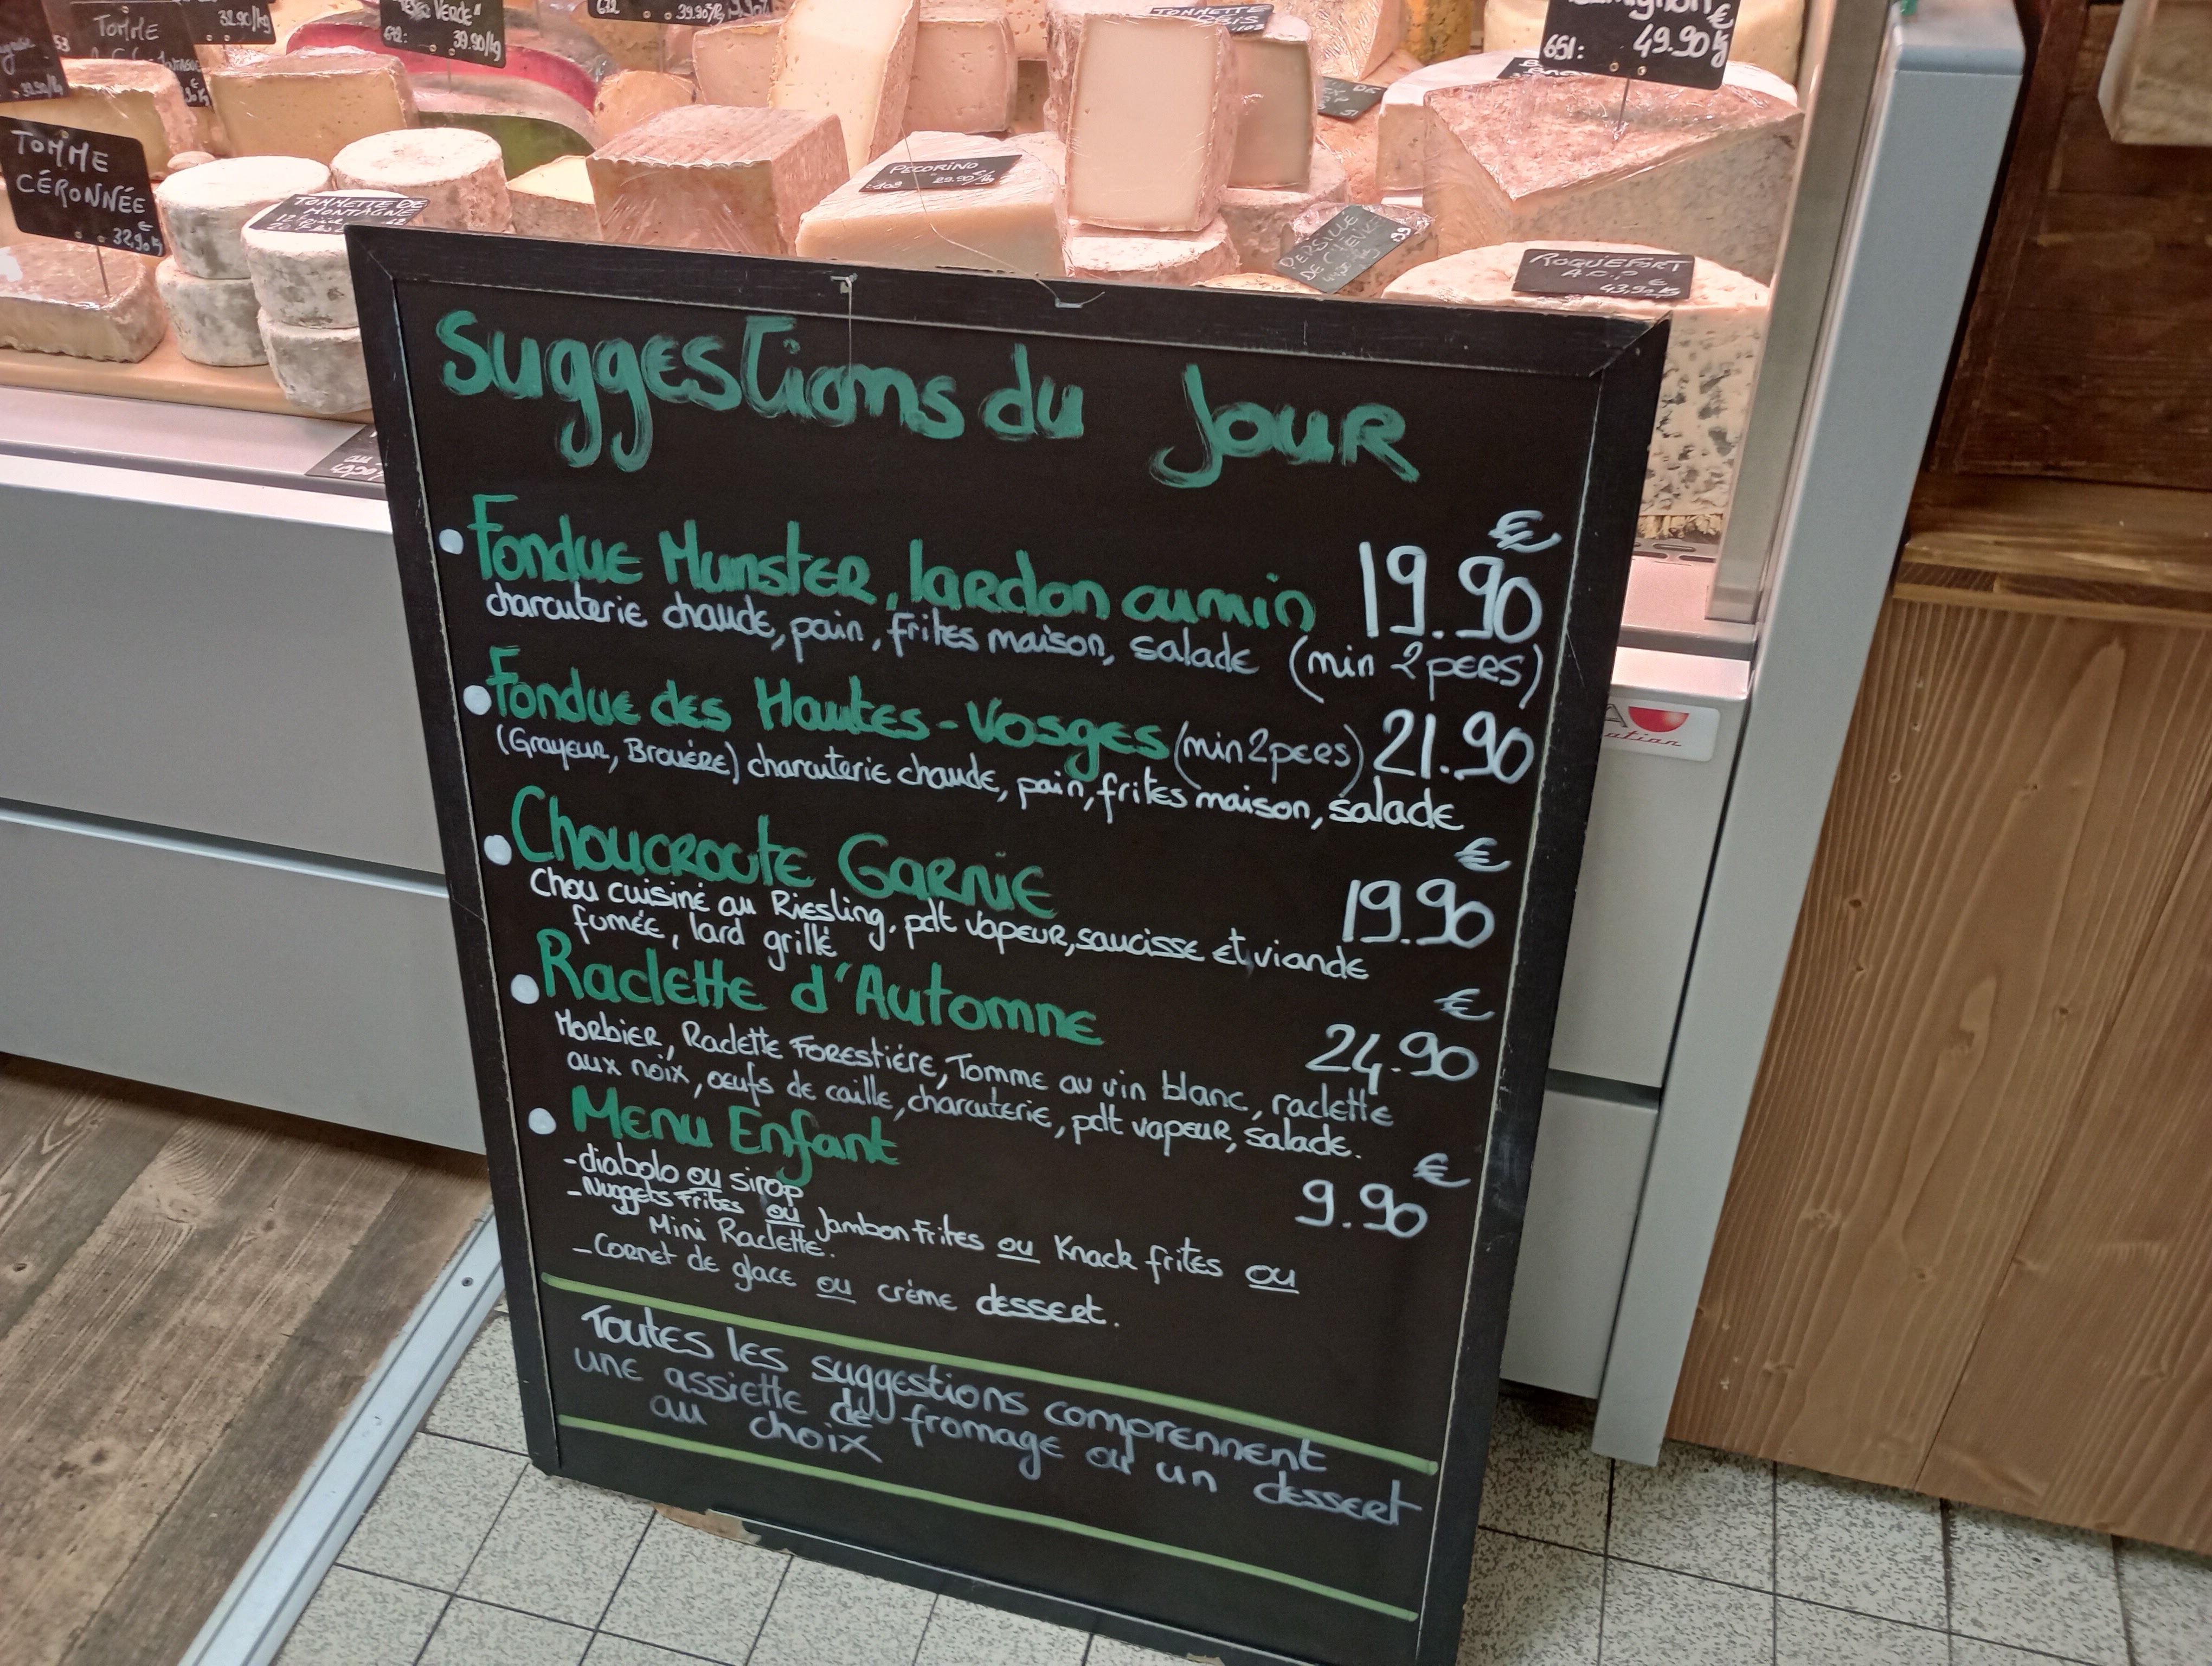 TOMME
32.90/kg
VERDE"
672:
39.90/kg
672
39.90/kg
TOMMETTE
651:
€
49.90 kg
TOMME
CÉRONNÉE
€
32,90 kg
TOMMETTE DE
MONTAGNE
PECORINO
29.90€/kg
PERSILLÉ
DE CHÈVRE
ROQUEFORT
A.O.P
€
43,90 kg
Suggestions du Jour
Fondue Munster, lardon cumin
€
19.90
charcuterie chaude, pain, frites maison, salade (min 2 pers)
Fondue des Hautes-Vosges (min 2 pers) 21.90
(Grayeur, Brouére) charcuterie chaude, pain, frites maison, salade
Choucroute Garnie
€
19.90
Chou cuisiné au Riesling, pdt vapeur, saucisse et viande
fumée, lard grillé
Raclette d'Automne
€
24.90
Morbier, Raclette Forestiére, Tomme au vin blanc, raclette
aux noix, oeufs de caille, charcuterie, pdt vapeur, salade.
Menu Enfant
€
9.90
-diabolo ou sirop
-Nuggets Frites ou Jambon Frites ou Knack frites ou
Mini Raclette.
-Cornet de glace ou crème dessert.
Toutes les suggestions comprennent
une assiette de fromage ou un dessert
au choix